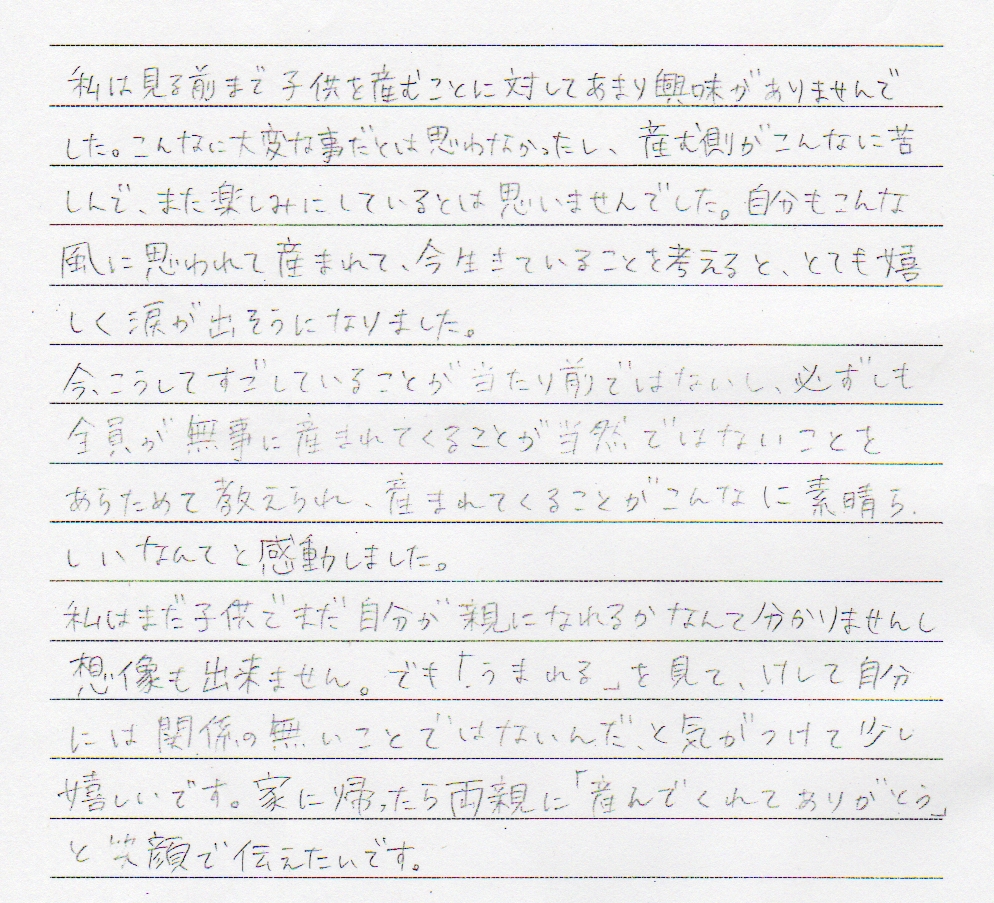 私は見る前まで子供を産むことに対してあまり興味がありませんで
した。こんなに大変な事だとは思わなかったし、産む側がこんなに苦
しんで、また楽しみにしているとは思いませんでした。自分もこんな
風に思われて産まれて、今生きていることを考えると、とても嬉
しく涙が出そうになりました。
今、こうしてすごしていることが当たり前ではないし、必ずしも
全員が無事に産まれてくることが当然ではないことを
あらためて教えられ、産まれてくることがこんなに素晴ら
しいなんてと感動しました。
私はまだ子供でまだ自分が親になれるかなんて分かりませんし
想像も出来ません。でも「うまれる」を見て、けして自分
には関係の無いことではないんだ、と気がつけて少し
嬉しいです。家に帰ったら両親に「産んでくれてありがとう」
と笑顔で伝えたいです。